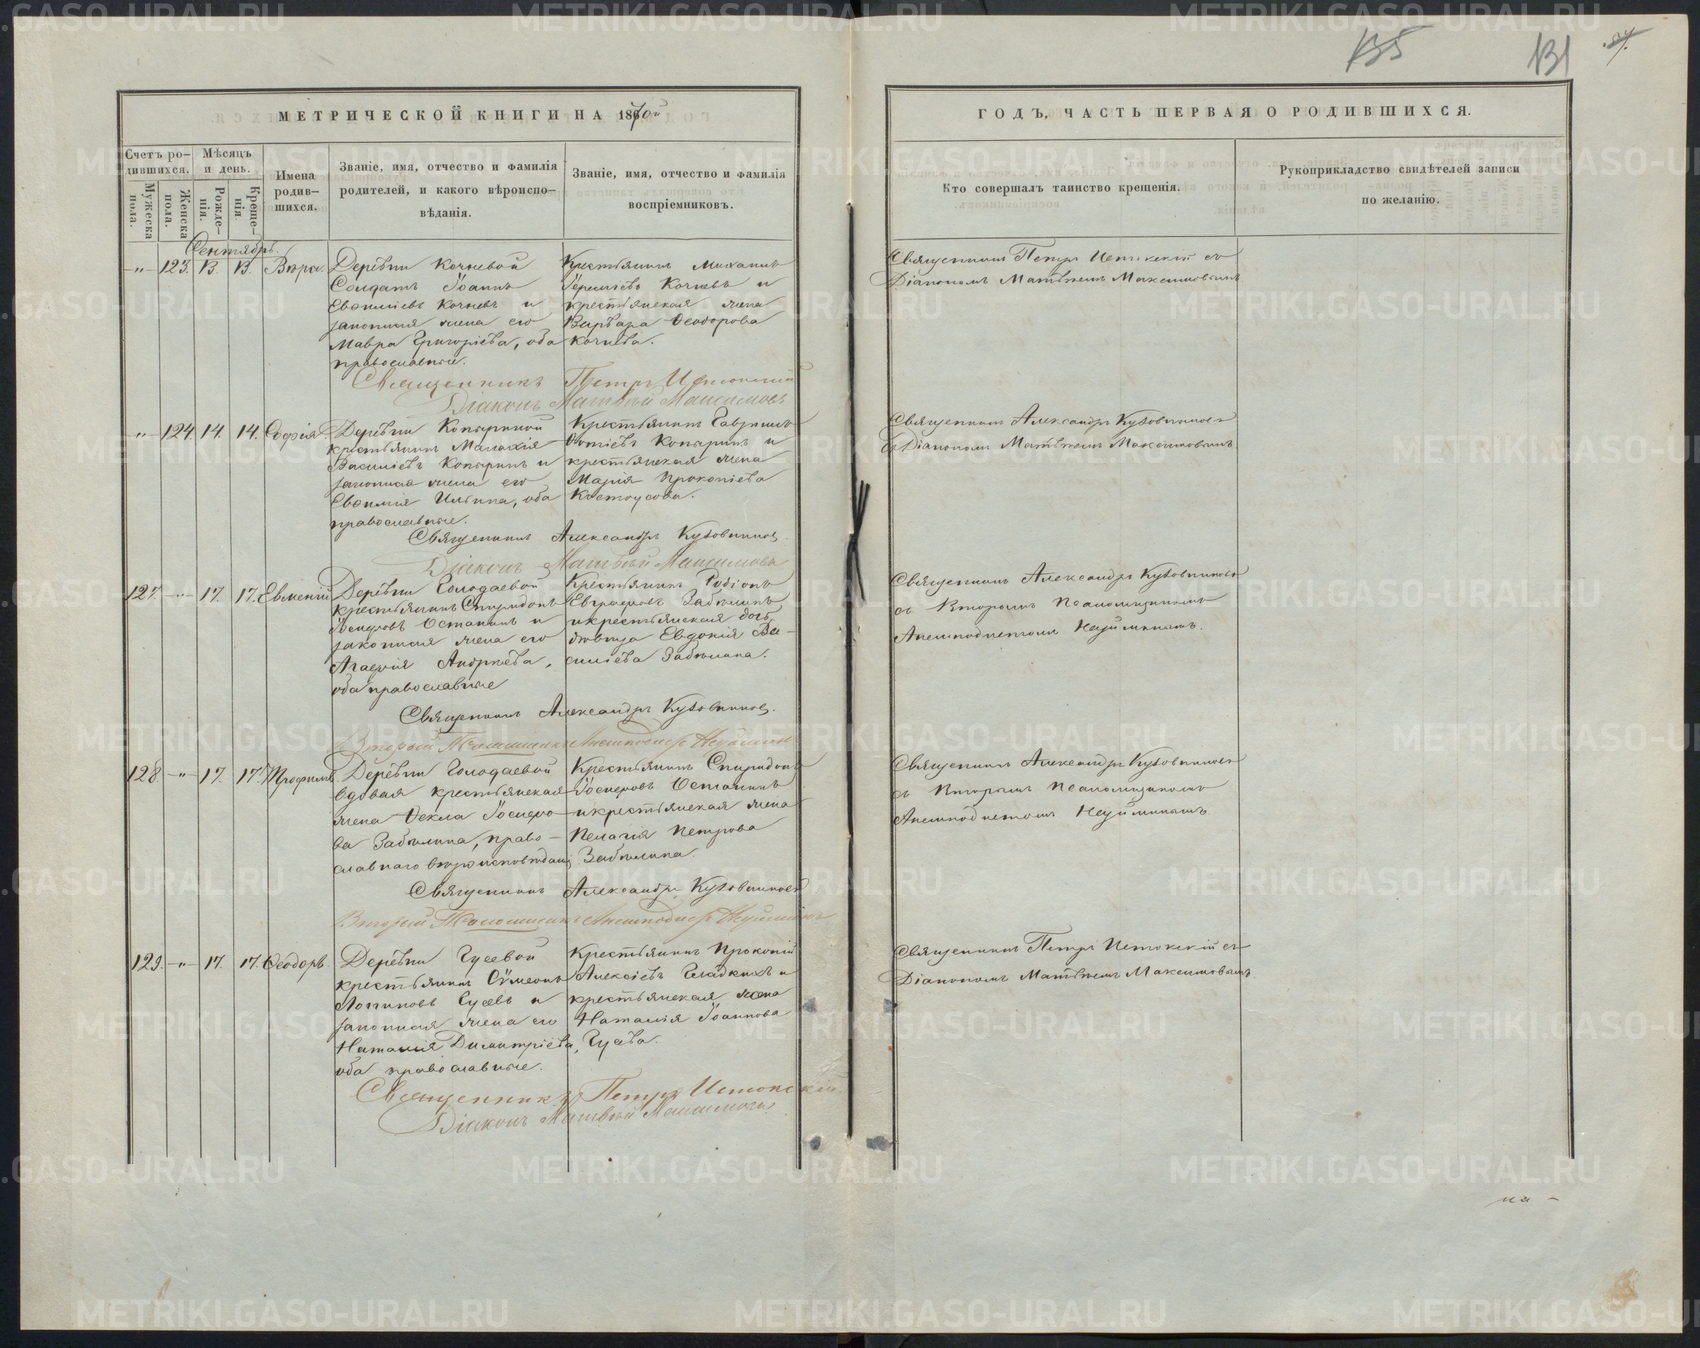 135
131
87.
МЕТРИЧЕСКОЙ КНИГИ НА 1870й
ГОДЪ, ЧАСТЬ ПЕРВАЯ О РОДИВШИХСЯ.
Счетъ ро-
дившихся.
Мужеска
пола.
Женска
пола.
Мѣсяцъ
и день.
Рожде-
нія.
Креще-
нія.
Имена
родив-
шихся.
Званіе, имя, отчество и фамилія
родителей, и какого вѣроиспо-
вѣданія.
Званіе, имя, отчество и фамилія
воспріемниковъ.
Кто совершалъ таинство крещенія.
Рукоприкладство свидѣтелей записи
по желанію.
Сентябрь
-„- 123. 13. 13. Вѣра.
Деревни Кочневой
Солдатъ Іоаннъ
Евѳиміевъ Кочневъ и
законная жена его
Мавра Григоріева, оба
православные.
Крестьянинъ Михаилъ
Кочневъ и
крестьянская жена
Варвара Ѳеодорова
Кочнева.
Священникъ Петръ
Діаконъ Матвѣй Максимовъ
Священникъ Петръ съ
Діакономъ Матвѣемъ Максимовымъ
-„- 124. 14. 14. Софія
Деревни Копыриной
крестьянинъ Малахія
Василіевъ Копыринъ и
законная жена его
Евѳимія Ильина, оба
православные.
Крестьянинъ Гавріилъ
Фотіевъ Копыринъ и
крестьянская жена
Марія Прокопіева
Костоусова.
Священникъ Александръ Кузовниковъ.
Діаконъ Матвѣй Максимовъ
Священникъ Александръ Кузовниковъ
съ Діакономъ Матвѣемъ Максимовымъ
127. -„- 17. 17. Евменій
Деревни Голодаевой
крестьянинъ Спиридонъ
Іосифовъ Останинъ и
законная жена его
Агафія Андреева,
оба православные
Крестьянинъ Родіонъ
Евграфовъ Забѣлинъ
и крестьянская дочь
дѣвица Евдокія Ва-
силіева Забѣлина.
Священникъ Александръ Кузовниковъ.
Второй Псаломщикъ Анемподистъ Неуйминъ
Священникъ Александръ Кузовниковъ
съ Вторымъ Псаломщикомъ
Анемподистомъ Неуйминымъ.
128. -„- 17. 17. Трофимъ
Деревни Голодаевой
вдовая крестьянская
жена Ѳекла Іосифо-
ва Забѣлина, право-
славнаго вѣроисповѣданія
Крестьянинъ Спиридонъ
Іосифовъ Останинъ
и крестьянская жена
Пелагія Петрова
Забѣлина.
Священникъ Александръ Кузовниковъ
Второй Псаломщикъ Анемподистъ Неуйминъ
Священникъ Александръ Кузовниковъ
съ Вторымъ Псаломщикомъ
Анемподистомъ Неуйминымъ
129. -„- 17. 17. Ѳеодоръ
Деревни Гусевой
крестьянинъ Сѵмеонъ
Логиновъ Гусевъ и
законная жена его
Наталія Димитріева,
оба православные.
Крестьянинъ Прокопій
Алексіевъ Гладкихъ и
крестьянская жена
Наталія Іоаннова
Гусева.
Священникъ Петръ
Діаконъ Матвѣй Максимовъ
Священникъ Петръ съ
Діакономъ Матвѣемъ Максимовымъ
METRIKI.GASO-URAL.RU